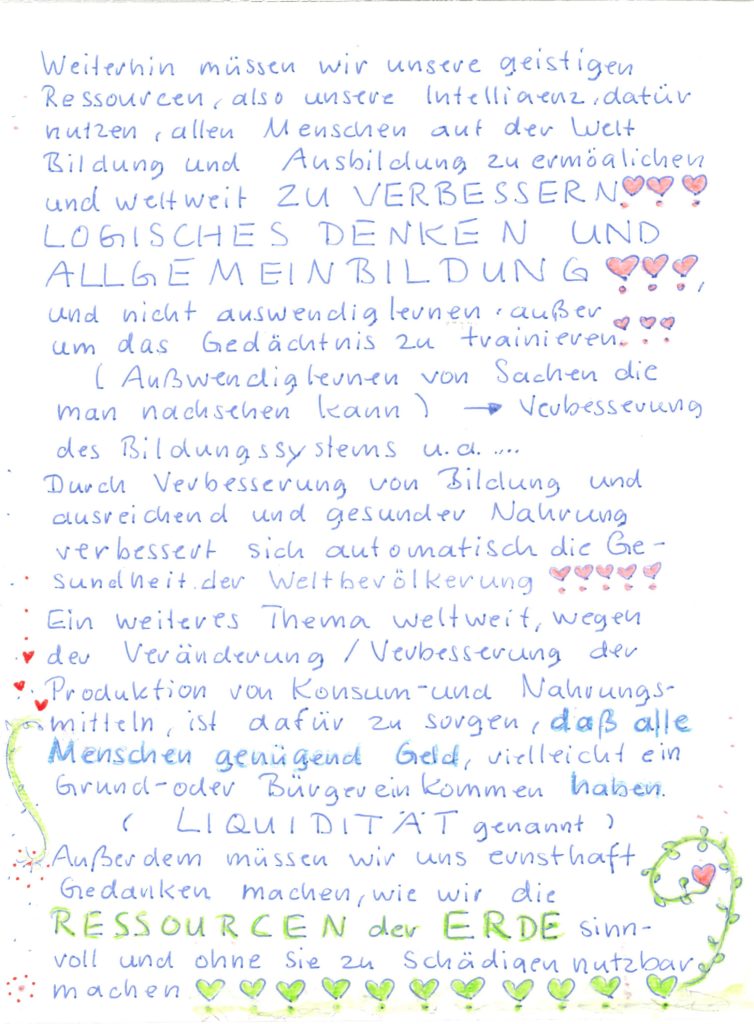 Weiterhin müssen wir unsere geistigen
Ressourcen, also unsere Intelligenz, dafür
nutzen, allen Menschen auf der Welt
Bildung und Ausbildung zu ermöglichen
und weltweit ZU VERBESSERN
LOGISCHES DENKEN UND
ALLGEMEINBILDUNG ,
und nicht auswendiglernen, außer
um das Gedächtnis zu trainieren
(Außwendiglernen von Sachen die
man nachsehen kann) → Verbesserung
des Bildungssystems u.a. ...
Durch Verbesserung von Bildung und
ausreichend und gesunder Nahrung
verbessert sich automatisch die Ge-
sundheit der Weltbevölkerung
Ein weiteres Thema weltweit, wegen
der Veränderung / Verbesserung der
Produktion von Konsum- und Nahrungs-
mitteln, ist dafür zu sorgen, daß alle
Menschen genügend Geld, vielleicht ein
Grund- oder Bürgereinkommen haben.
( LIQUIDITÄT genannt )
Außerdem müssen wir uns ernsthaft
Gedanken machen, wie wir die
RESSOURCEN der ERDE sinn-
voll und ohne Sie zu Schädigen nutzbar
machen